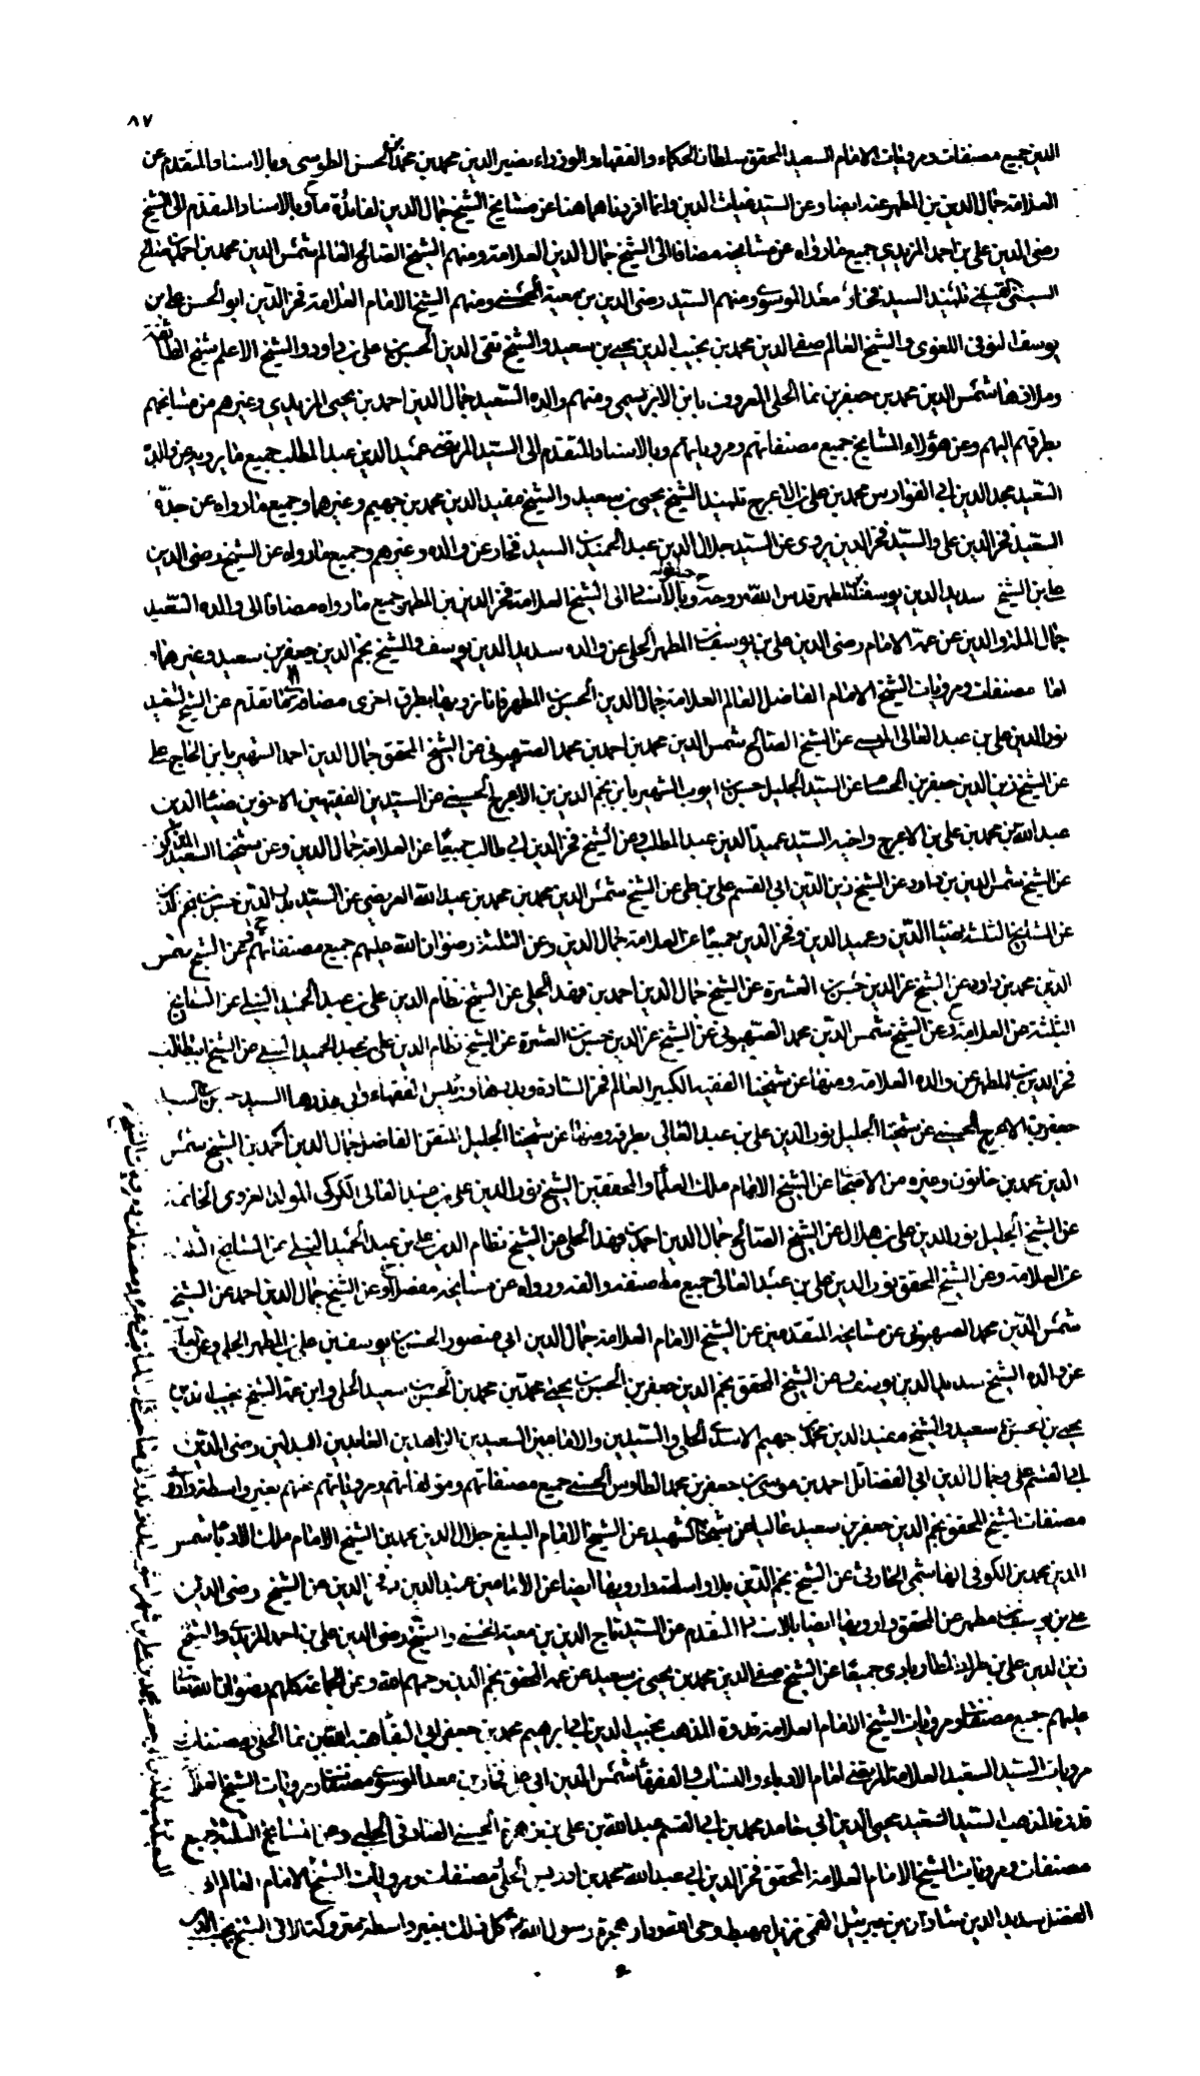 ٨٧
الدين جميع مصنفات ومرويات الامام السعيد المحقق سلطان الحكماء والفقهاء والوزراء نصير الدين محمد بن محمد بن الحسن الطوسي وبالاسناد المتقدم عن
العلامة جمال الدين بن المطهر عنه ايضا وعن السيد غياث الدين وانما افردناهما هنا عن مشايخ الشيخ جمال الدين لفائدة ما وبالاسناد المتقدم الى الشيخ
رضى الدين على بن احمد المزيدي جميع ما رواه عن مشايخه مضافا الى الشيخ جمال الدين العلامة ومنهم الشيخ الصالح العالم شمس الدين محمد بن احمد بن صالح
السيبى القسيني تلميذ السيد فخار بن معد الموسوي ومنهم السيد رضى الدين بن معية الحسني ومنهم الشيخ الامام العلامة فخر الدين ابو الحسن على بن
يوسف البوقى اللغوى والشيخ العالم صفى الدين محمد بن نجيب الدين يحيى بن سعيد والشيخ تقى الدين الحسن بن على بن داود والشيخ الاعلم شيخ الطائفة
وملاذها شمس الدين محمد بن جعفر بن نما الحلى المعروف بابن الابريسمى ومنهم والده السعيد جمال الدين احمد بن يحيى المزيدي وغيرهم من مشايخهم
بطرقهم اليهم وعن هؤلاء المشايخ جميع مصنفاتهم ومروياتهم وبالاسناد المتقدم الى السيد المرتضى عميد الدين عبد المطلب جميع ما يرويه عن والده
السعيد مجد الدين ابى الفوارس محمد بن على بن الاعرج تلميذ الشيخ يحيى بن سعيد والشيخ مفيد الدين محمد بن جهيم وغيرهما وجميع ما رواه عن جده
السعيد فخر الدين على والسيد فخر الدين يروى عن السيد جلال الدين عبد الحميد بن السيد فخار عن والده وغيرهم وجميع ما رواه عن الشيخ رضى الدين
على بن الشيخ سديد الدين يوسف بن المطهر قدس الله روحه وبالاسناد الى الشيخ العلامة فخر الدين بن المطهر جميع ما رواه مضافا الى والده السعيد
جمال الملة والدين عن عمه الامام رضى الدين على بن يوسف بن المطهر الحلى عن والده سديد الدين يوسف والشيخ نجم الدين جعفر بن سعيد وغيرهما و
اما مصنفات ومرويات الشيخ الامام الفاضل العالم العلامة جمال الدين الحسن بن المطهر فانا نرويها بطرق اخرى مضافة الى ما تقدم عن الشيخ السعيد
نور الدين على بن عبد العالى الميسى عن الشيخ الصالح شمس الدين محمد بن احمد بن محمد الصهيونى عن الشيخ المحقق جمال الدين احمد الشهير بابن الحاج على
عن الشيخ زين الدين جعفر بن الحسام عن السيد الجليل حسن بن ايوب الشهير بابن نجم الدين بن الاعرج الحسينى عن السيدين الفقيهين الاخوين ضياء الدين
عبد الله بن محمد بن على بن الاعرج واخيه السيد عميد الدين عبد المطلب وعن الشيخ فخر الدين ابى طالب جميعا عن العلامة جمال الدين وعن شيخنا السعيد المذكور
عن الشيخ شمس الدين بن داود عن الشيخ زين الدين ابى القسم على بن طى عن الشيخ شمس الدين محمد بن محمد بن عبد الله العريضى عن السيد بدر الدين حسن بن نجم الدين
عن المشايخ الثلثة ضياء الدين وعميد الدين وفخر الدين جميعا عن العلامة جمال الدين وعن الثلثة رضوان الله عليهم جميع مصنفاتهم وعن الشيخ شمس
الدين محمد بن داود عن الشيخ عز الدين حسن بن العشرة عن الشيخ جمال الدين احمد بن فهد الحلى عن الشيخ نظام الدين على بن عبد الحميد النيلى عن المشايخ
الثلثة عن العلامة وعن الشيخ شمس الدين محمد الصهيونى عن الشيخ عز الدين حسن بن العشرة عن الشيخ نظام الدين على بن عبد الحميد النيلى عن الشيخ ابيطالب
فخر الدين بن المطهر عن والده العلامة ومنها عن شيخنا الفقيه الكبير العالم فخر السادة وبدرها ورئيس الفقهاء وابى عذرها السيد
جعفر بن الاعرج الحسينى عن شيخنا الجليل نور الدين على بن عبد العالى بطرقه ومنها عن شيخنا الجليل المتقن الفاضل جمال الدين احمد بن الشيخ شمس
الدين محمد بن خاتون وغيره من الاصحاب عن الشيخ الامام ملك العلماء والمحققين الشيخ نور الدين على بن عبد العالى الكركى المولد الغروى الخاتمة
عن الشيخ الجليل نور الدين على بن هلال عن الشيخ الصالح جمال الدين احمد بن فهد الحلى عن الشيخ نظام الدين على بن عبد الحميد النيلى عن المشايخ الثلثة
عن العلامة وعن الشيخ المحقق نور الدين على بن عبد العالى جميع ما صنفه والفه ورواه عن مشايخه مفصلا وعن الشيخ جمال الدين احمد عن الشيخ
شمس الدين محمد الصهيونى عن مشايخه المتقدمين عن الشيخ الامام العلامة جمال الدين ابى منصور الحسن بن يوسف بن على بن المطهر الحلى وعن
عن والده الشيخ سديد الدين يوسف وعن الشيخ المحقق نجم الدين جعفر بن الحسن بن يحيى محمد بن محمد بن الحسن بن سعيد الحلى وابن عمه الشيخ نجيب الدين
يحيى بن حسن بن سعيد والشيخ مفيد الدين محمد بن جهيم الاسدى الحلى والسيدين والامامين السعيدين الزاهدين العابدين البدلين رضى الدين
ابى القسم على وجمال الدين ابى الفضائل احمد بن موسى بن جعفر بن محمد الطاوس الحسنى جميع مصنفاتهم ومؤلفاتهم ومروياتهم عنهم بغير واسطة
مصنفات الشيخ المحقق نجم الدين جعفر بن سعيد غالبا عن شيخنا الشهيد عن الشيخ الامام البليغ جلال الدين محمد بن الشيخ الامام ملك الادباء شمس
الدين محمد بن الكوفى الهاشمى الحارثى عن الشيخ نجم الدين بلا واسطة وارويها ايضا عن الامامين عميد الدين وفخر الدين عن الشيخ رضى الدين
على بن يوسف بن مطهر عن المحقق وارويها ايضا بالاسناد المتقدم عن السيد تاج الدين بن معية الحسنى والشيخ رضى الدين على بن احمد المزيدى والشيخ
زين الدين على بن طراد المطاربادى جميعا عن الشيخ صفى الدين محمد بن يحيى بن سعيد عن عمه المحقق نجم الدين رحمهم الله وعن الجماعة كلهم رضوان الله تعالى
عليهم جميع مصنفات ومرويات الشيخ الامام العلامة قدوة المذهب نجيب الدين ابى ابرهيم محمد بن جعفر بن ابى البقاء هبة الله بن نما الحلى ومصنفات
مرويات السيد السعيد العلامة المرتضى امام الادباء والنساب والفقهاء شمس الدين ابى على فخار بن معد الموسوى ومصنفات ومرويات الشيخ العلامة
قدوة المذهب السيد السعيد محيى الدين ابى حامد محمد بن ابى القسم عبد الله بن على بن زهرة الحسينى الصادقى الحلبى وعن المشايخ الثلثة جميع
مصنفات ومرويات الشيخ الامام العلامة المحقق فخر الدين ابى عبد الله محمد بن ادريس الحلى ومصنفات ومرويات الشيخ الامام العالم ابى
الفضل سديد الدين شاذان بن جبرئيل القمى نزيل مهبط وحى الله ودار هجرة رسول الله كل ذلك بغير واسطة متروكة الا فى الشيخ نجيب الدين